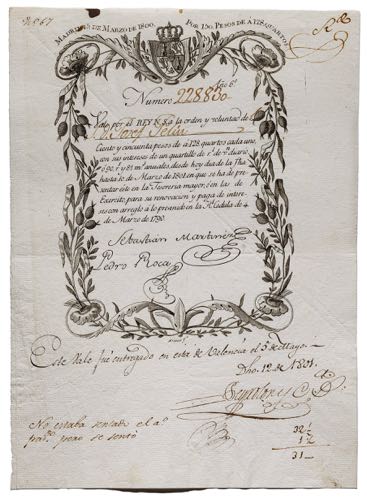 MADRID 1º DE MARZO DE 1800. POR 150. PESOS DE Á 128 QUARTOS.
Año 6º
Numero 22883
Vale por el REY N.S. a la orden y voluntad de
Josef Feliu
Ciento y cincuenta pesos de á 128. quartos cada uno,
con sus intereses de un quartillo de r.ˢ v.ⁿ diario,
ó 90 r.ˢ y 81 m.ˢ anuales, desde hoy dia de la fha
hasta 1º de Marzo de 1801. en que se ha de pre-
sentar este en la Tesorería mayor, ó en las de
Exército, para su renovacion y paga de intere-
ses con arreglo á lo prevenido en la R.ˡ Cédula de 4
de Marzo de 1790.
Sebastián Martinez
Pedro Roca
Este Vale fué entregado en esta de Valencia el 5 de Mayo
Dho. 12 de 1801.
No estaba sentado el
pero se sentó
32
1
31